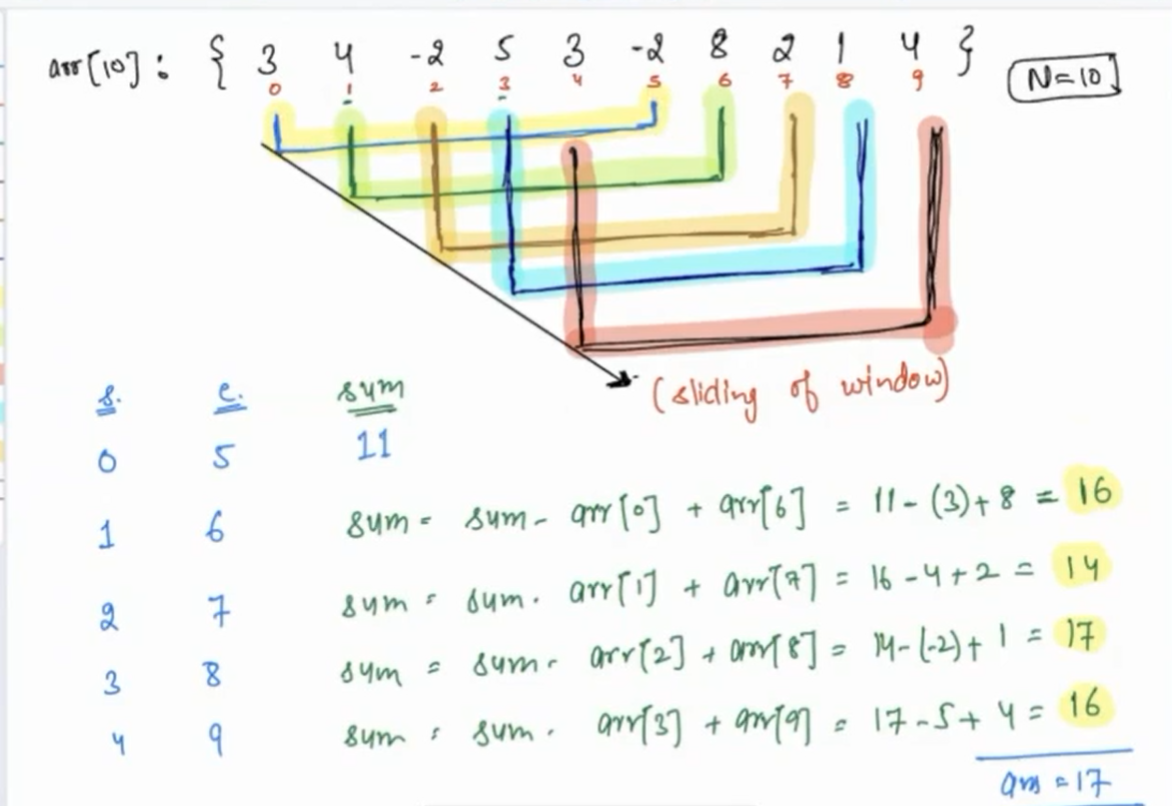 arr[10] : { 3 4 -2 5 3 -2 8 2 1 4 } N=10
0 1 2 3 4 5 6 7 8 9
(sliding of window)
s. e. sum
0 5 11
1 6 sum = sum - arr[0] + arr[6] = 11 - (3) + 8 = 16
2 7 sum = sum - arr[1] + arr[7] = 16 - 4 + 2 = 14
3 8 sum = sum - arr[2] + arr[8] = 14 - (-2) + 1 = 17
4 9 sum = sum - arr[3] + arr[9] = 17 - 5 + 4 = 16
ans = 17